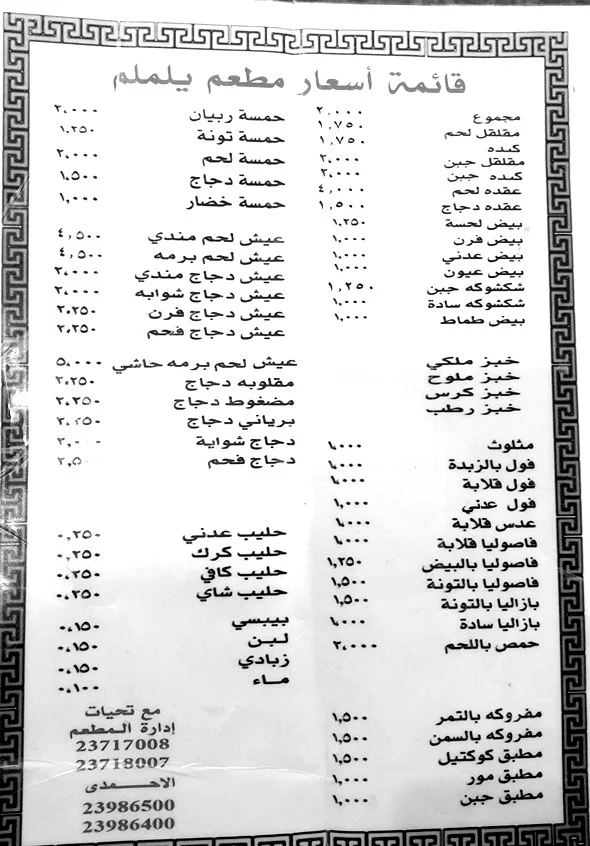 قائمة أسعار مطعم يلملم
مجموع ٢,٠٠٠
مقلقل لحم ١,٧٥٠
كبده ١,٧٥٠
مقلقل جبن ٢,٠٠٠
كبده جبن ٢,٠٠٠
عقده لحم ٤,٠٠٠
عقده دجاج ١,٥٠٠
بيض لحسة ١,٢٥٠
بيض فرن ١,٠٠٠
بيض عدني ١,٠٠٠
بيض عيون ١,٠٠٠
شكشوكه جبن ١,٢٥٠
شكشوكه سادة ١,٠٠٠
بيض طماط ١,٠٠٠
خبز ملكي
خبز ملوح
خبز كرس
خبز رطب
مثلوث ١,٠٠٠
فول بالزبدة ١,٠٠٠
فول قلابة ١,٠٠٠
فول عدني ١,٠٠٠
عدس قلابة ١,٠٠٠
فاصوليا قلابة ١,٠٠٠
فاصوليا بالبيض ١,٢٥٠
فاصوليا بالتونة ١,٥٠٠
بازاليا بالتونة ١,٥٠٠
بازاليا سادة ١,٠٠٠
حمص باللحم ٢,٠٠٠
مفروكه بالتمر ١,٥٠٠
مفروكه بالسمن ١,٥٠٠
مطبق كوكتيل ١,٥٠٠
مطبق مور ١,٠٠٠
مطبق جبن ١,٠٠٠
حمسة ربيان ٢,٠٠٠
حمسة تونة ١,٢٥٠
حمسة لحم ٢,٠٠٠
حمسة دجاج ١,٥٠٠
حمسة خضار ١,٠٠٠
عيش لحم مندي ٤,٥٠٠
عيش لحم برمه ٤,٥٠٠
عيش دجاج مندي ٢,٠٠٠
عيش دجاج شوايه ٢,٠٠٠
عيش دجاج فرن ٢,٢٥٠
عيش دجاج فحم ٢,٢٥٠
عيش لحم برمه حاشي ٥,٠٠٠
مقلوبه دجاج ٢,٢٥٠
مضغوط دجاج ٢,٢٥٠
برياني دجاج ٢,٢٥٠
دجاج شواية
دجاج فحم
حليب عدني ٠,٢٥٠
حليب كرك ٠,٢٥٠
حليب كافي ٠,٢٥٠
حليب شاي ٠,٢٥٠
بيبسي ٠,١٥٠
لبن ٠,١٥٠
زبادي ٠,١٥٠
مـاء ٠,١٠٠
مع تحيات
إدارة المطعم
23717008
23718007
الاحـمـدى
23986500
23986400